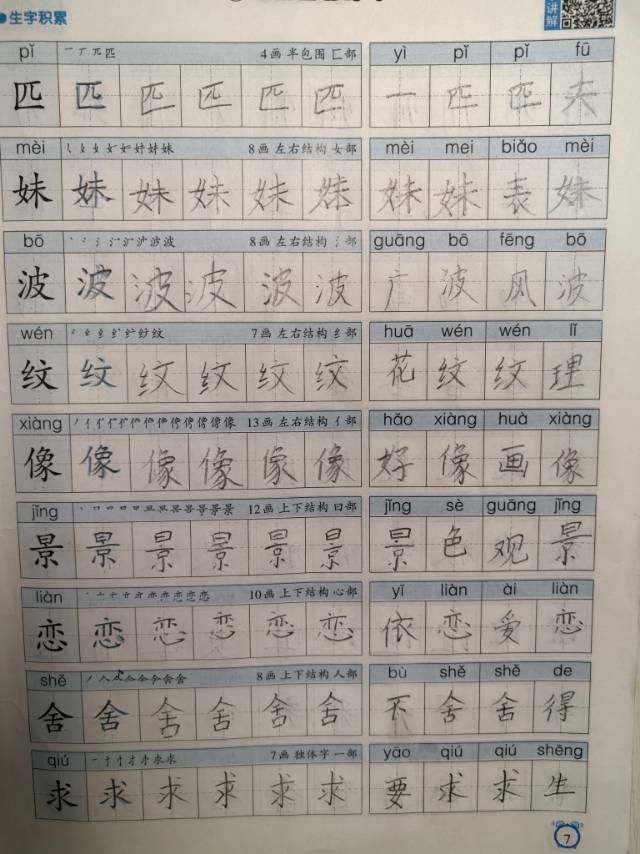 生字积累
讲解
pǐ 4画 半包围 匚部 yì pǐ pǐ fū
匹 匹 匹 匹 匹 匹 一 匹 匹 夫
mèi 8画 左右结构 女部 mèi mei biǎo mèi
妹 妹 妹 妹 妹 妹 妹 妹 表 妹
bō 8画 左右结构 氵部 guāng bō fēng bō
波 波 波 波 波 波 广 波 风 波
wén 7画 左右结构 纟部 huā wén wén lǐ
纹 纹 纹 纹 纹 纹 花 纹 纹 理
xiàng 13画 左右结构 亻部 hǎo xiàng huà xiàng
像 像 像 像 像 像 好 像 画 像
jǐng 12画 上下结构 日部 jǐng sè guāng jǐng
景 景 景 景 景 景 景 色 观 景
liàn 10画 上下结构 心部 yī liàn ài liàn
恋 恋 恋 恋 恋 恋 依 恋 爱 恋
shě 8画 上下结构 人部 bù shě shě de
舍 舍 舍 舍 舍 舍 不 舍 舍 得
qiú 7画 独体字 一部 yāo qiú qiú shēng
求 求 求 求 求 求 要 求 求 生
7